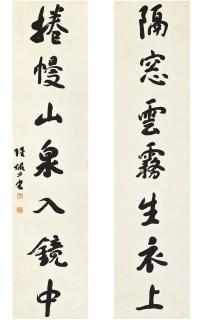 隔窓雲霧生衣上
捲幔山泉入鏡中
陸儼少書